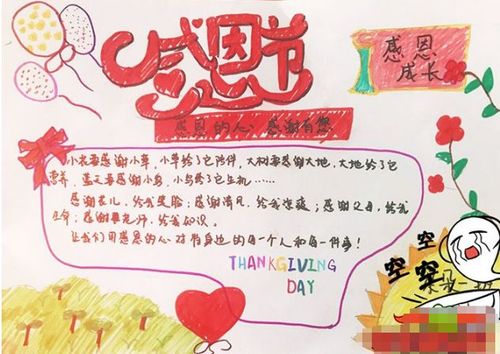 感恩节
感恩
成长
感恩的心，感谢有您
小花要感谢小草，小草给了它陪伴，大树要感谢大地，大地给了它
营养，蓝天要感谢小鸟，小鸟给了它生机……
感谢花儿，给我笑脸；感谢清风，给我凉爽；感谢父母，给我
生命；感谢老师，给我知识。
让我们用感恩的心对待身边的每一个人和每一件事！
THANKGIVING
DAY
空空
突